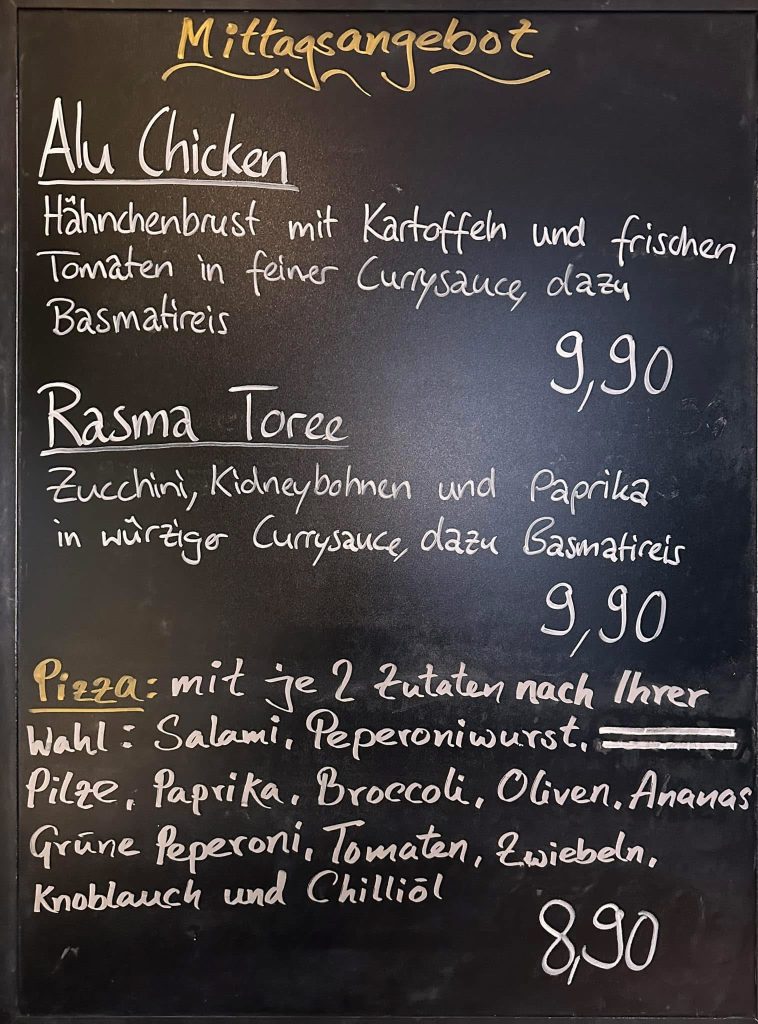 Mittagsangebot
Alu Chicken
Hähnchenbrust mit Kartoffeln und frischen
Tomaten in feiner Currysauce, dazu
Basmatireis
9,90
Rasma Toree
Zucchini, Kidneybohnen und Paprika
in würziger Currysauce, dazu Basmatireis
9,90
Pizza: mit je 2 Zutaten nach Ihrer
Wahl: Salami, Peperoniwurst,
Pilze, Paprika, Broccoli, Oliven, Ananas
Grüne Peperoni, Tomaten, Zwiebeln,
Knoblauch und Chilliöl
8,90